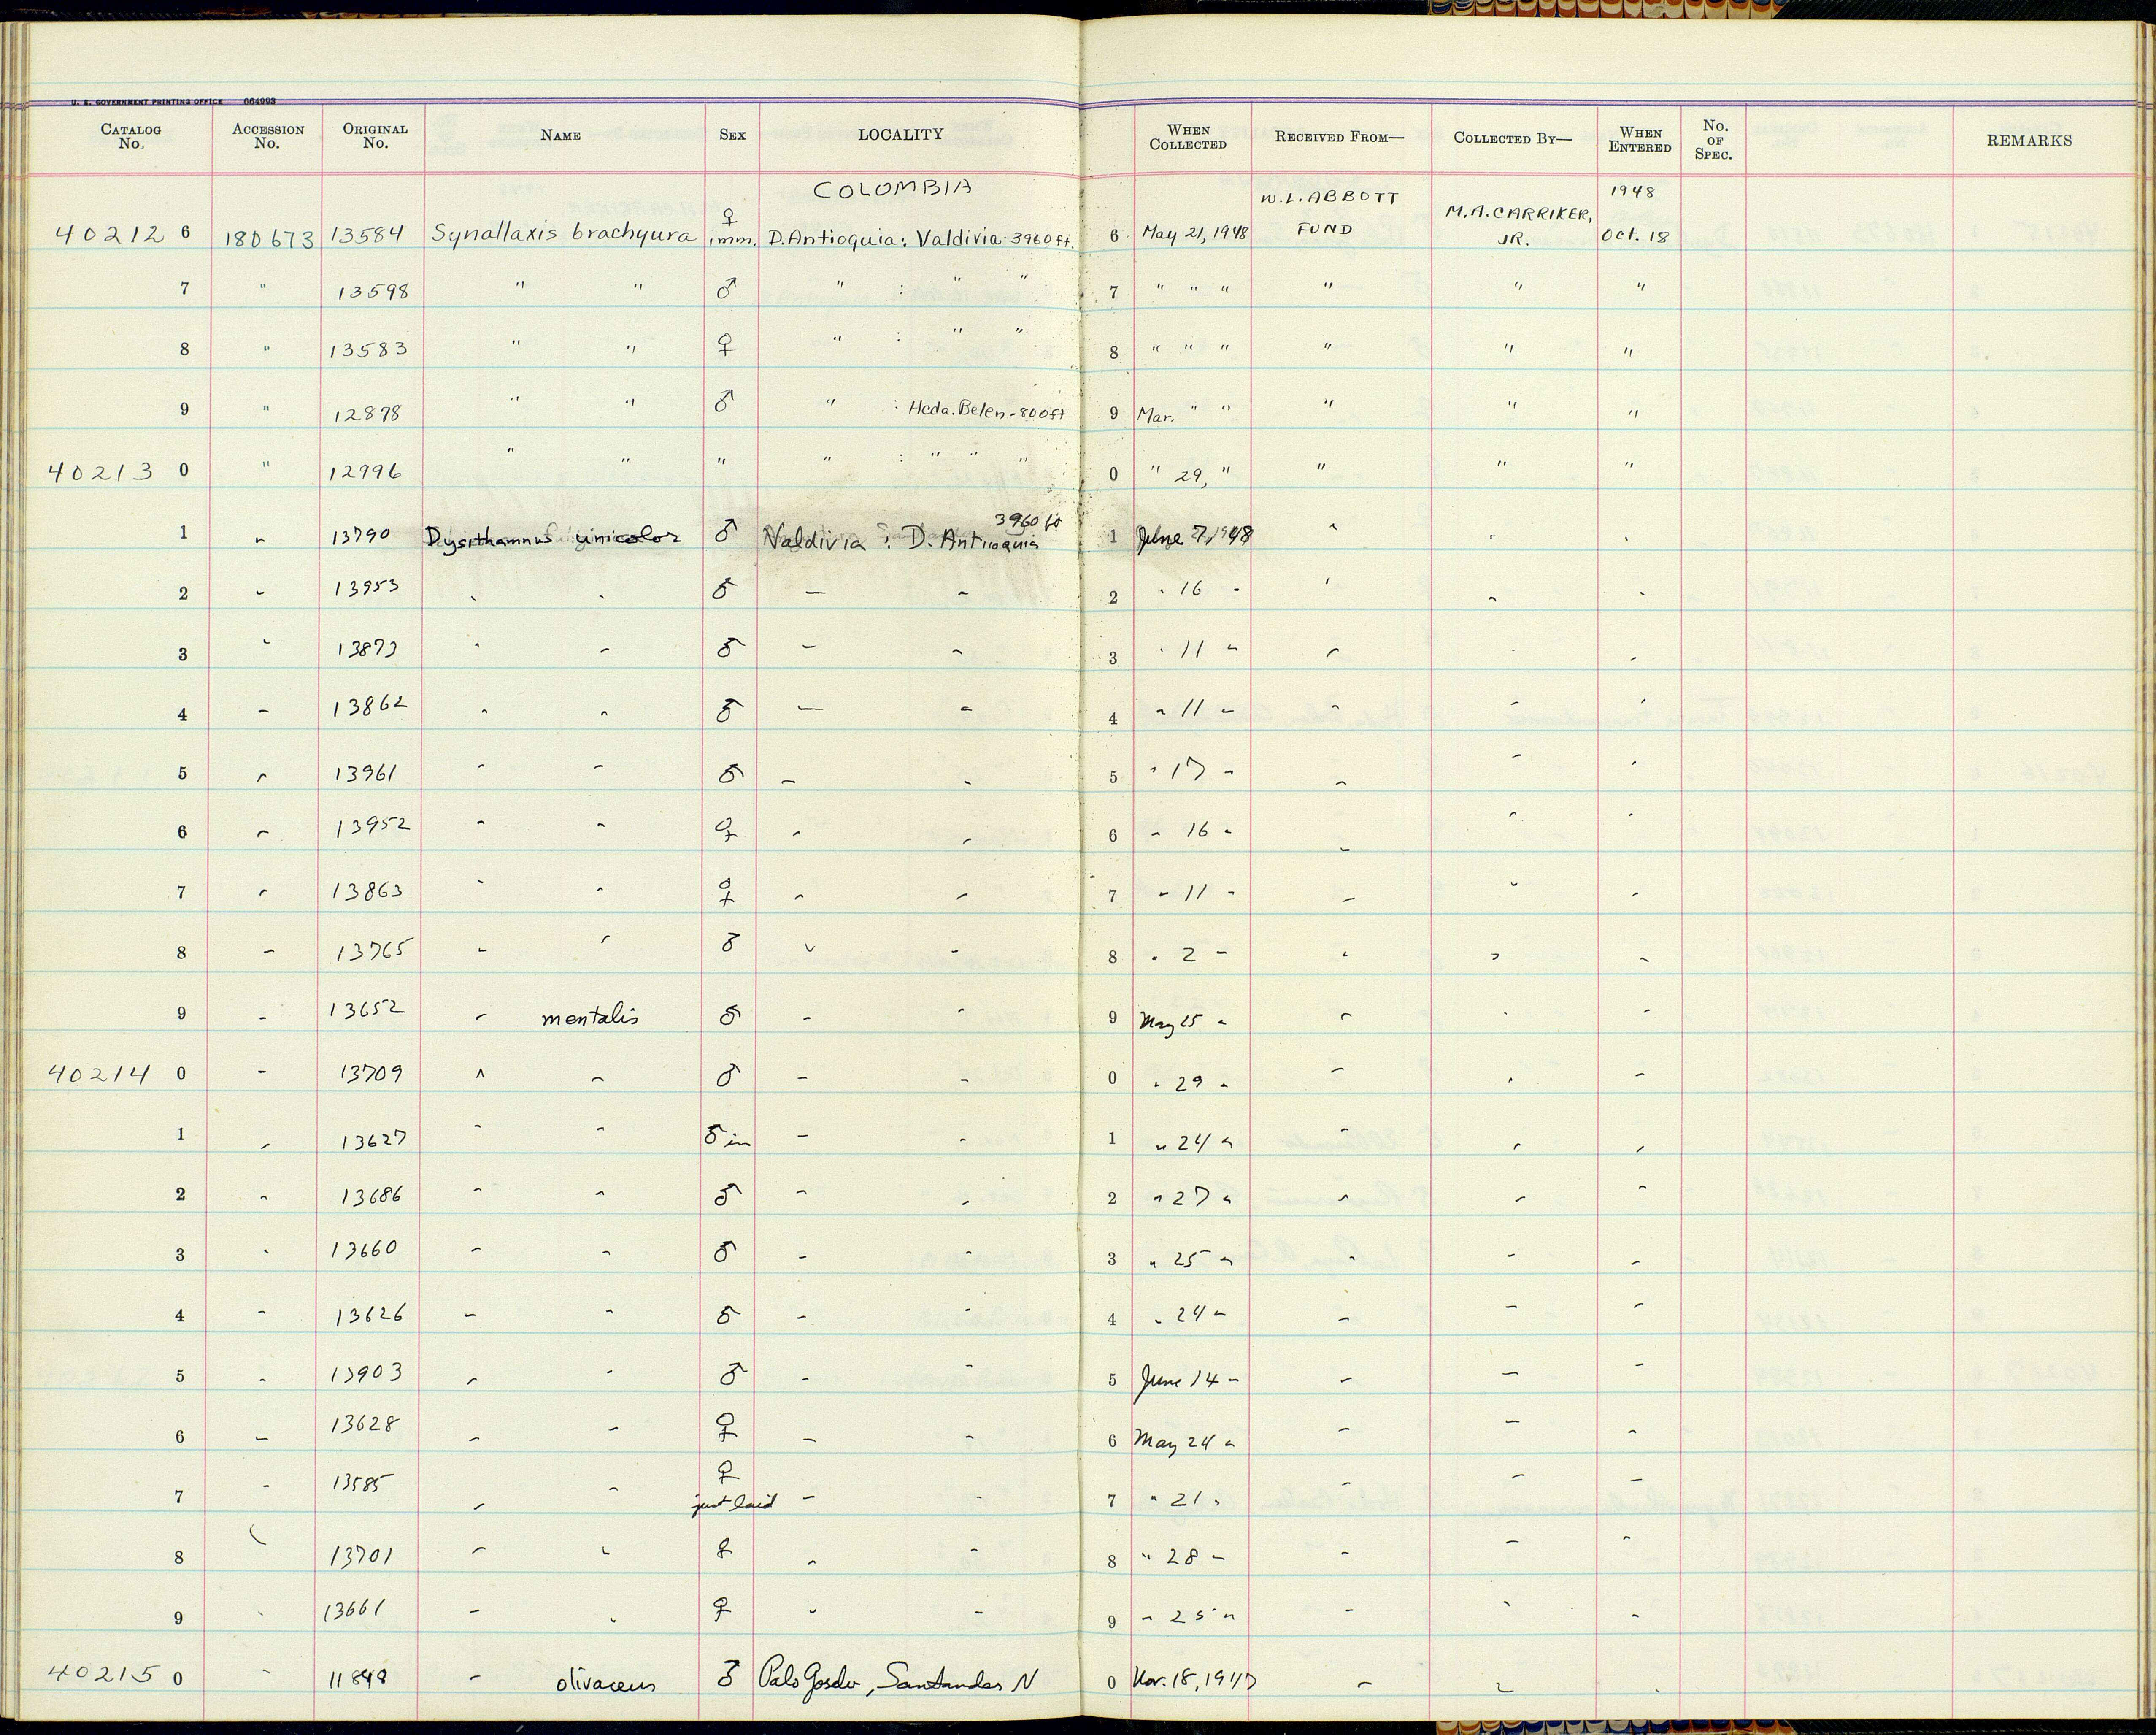 U. S. GOVERNMENT PRINTING OFFICE 664993
CATALOG No. ACCESSION No. ORIGINAL No. NAME SEX LOCALITY WHEN COLLECTED RECEIVED FROM— COLLECTED BY— WHEN ENTERED No. OF SPEC. REMARKS
COLOMBIA W. L. ABBOTT FUND M. A. CARRIKER, JR. 1948
40212 6 180673 13584 Synallaxis brachyura ♀ imm. D. Antioquia: Valdivia 3960 ft. 6 May 21, 1948 Oct. 18
7 " 13598 " " ♂ " : " " 7 " " " " " "
8 " 13583 " " ♀ " : " " 8 " " " " " "
9 " 12878 " " ♂ " : Hcda. Belen - 800 ft 9 Mar. " " " " "
40213 0 " 12996 " " " " : " " " 0 " 29, " " " "
1 " 13790 Dysithamnus unicolor ♂ Valdivia : D. Antioquia 3960 ft 1 June 7, 1948 " " "
2 " 13953 " " ♂ " " 2 " 16 " " " "
3 " 13873 " " ♂ " " 3 " 11 " " " "
4 " 13862 " " ♂ " " 4 " 11 " " " "
5 " 13961 " " ♂ " " 5 " 17 " " " "
6 " 13952 " " ♀ " " 6 " 16 " " " "
7 " 13863 " " ♀ " " 7 " 11 " " " "
8 " 13765 " " ♂ " " 8 " 2 " " " "
9 " 13652 " mentalis ♂ " " 9 May 25 " " " "
40214 0 " 13709 " " ♂ " " 0 " 29 " " " "
1 " 13627 " " ♂ im " " 1 " 24 " " " "
2 " 13686 " " ♂ " " 2 " 27 " " " "
3 " 13660 " " ♂ " " 3 " 25 " " " "
4 " 13626 " " ♂ " " 4 " 24 " " " "
5 " 13903 " " ♂ " " 5 June 14 " " " "
6 " 13628 " " ♀ " " 6 May 24 " " " "
7 " 13585 " " ♀ just laid " " 7 " 21 " " " "
8 " 13701 " " ♀ " " 8 " 28 " " " "
9 " 13661 " " ♀ " " 9 " 25 " " " "
40215 0 " " olivaceus ♂ Palo , Santander N 0 Nov. 18, 1947 " " "